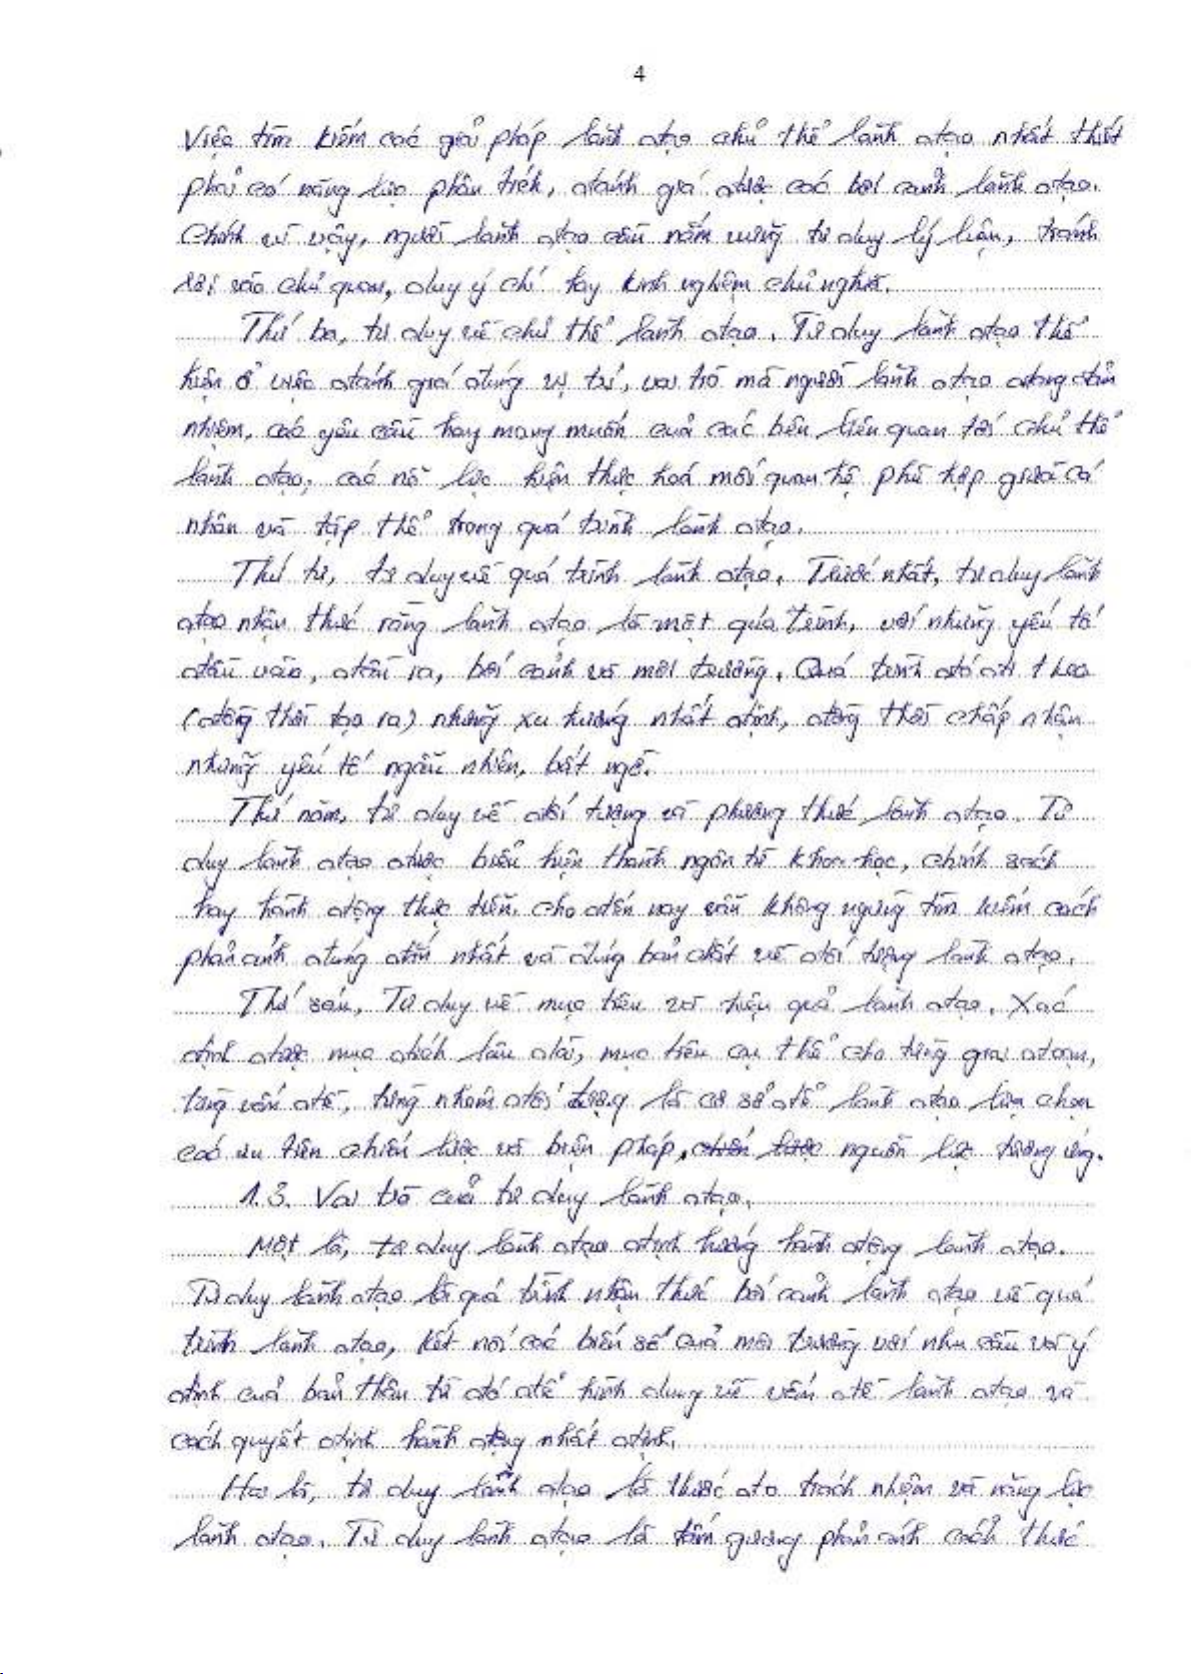 4
Việc tìm kiếm các giải pháp lãnh đạo chủ thể lãnh đạo nhất thiết
phải có năng lực phân tích, đánh giá được các bối cảnh lãnh đạo.
Chính vì vậy, người lãnh đạo cần nắm vững tư duy lý luận, tránh
rơi vào chủ quan, duy ý chí hay kinh nghiệm chủ nghĩa.
Thứ ba, tư duy về chủ thể lãnh đạo. Tư duy lãnh đạo thể
hiện ở việc đánh giá đúng vị trí, vai trò mà người lãnh đạo đang đảm
nhiệm, các yêu cầu hay mong muốn của các bên liên quan tới chủ thể
lãnh đạo, các nỗ lực hiện thực hoá mối quan hệ phù hợp giữa cá
nhân và tập thể trong quá trình lãnh đạo.
Thứ tư, tư duy về quá trình lãnh đạo. Trước nhất, tư duy lãnh
đạo nhận thức rằng lãnh đạo là một quá trình, với những yếu tố
đầu vào, đầu ra, bối cảnh và môi trường. Quá trình đó đi theo
(đồng thời tạo ra) những xu hướng nhất định, đồng thời chấp nhận
những yếu tố ngẫu nhiên, bất ngờ.
Thứ năm, tư duy về đối tượng và phương thức lãnh đạo. Tư
duy lãnh đạo được biểu hiện thành ngôn từ khoa học, chính sách
hay hành động thực tiễn. cho đến nay vẫn không ngừng tìm kiếm cách
phản ánh đúng đắn nhất và đúng bản chất về đối tượng lãnh đạo.
Thứ sáu, Tư duy về mục tiêu và hiệu quả lãnh đạo. Xác
định được mục đích lâu dài, mục tiêu cụ thể cho từng giai đoạn,
từng vấn đề, từng nhóm đối tượng là cơ sở để lãnh đạo lựa chọn
các ưu tiên chiến lược và biện pháp, chiến lược nguồn lực tương ứng.
1.3. Vai trò của tư duy lãnh đạo.
Một là, tư duy lãnh đạo định hướng hành động lãnh đạo.
Tư duy lãnh đạo là quá trình nhận thức bối cảnh lãnh đạo về quá
trình lãnh đạo, kết nối các biến số của môi trường với nhu cầu và ý
định của bản thân từ đó để hình dung về vấn đề lãnh đạo và
cách quyết định hành động nhất định.
Hai là, tư duy lãnh đạo là thước đo trách nhiệm và năng lực
lãnh đạo. Tư duy lãnh đạo là tấm gương phản ánh cách thức